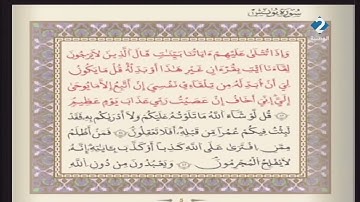 سورة يونس
وَإِذَا تُتْلَىٰ عَلَيْهِمْ ءَايَاتُنَا بَيِّنَٰتٍ قَالَ ٱلَّذِينَ لَا يَرْجُونَ
لِقَآءَنَا ٱئْتِ بِقُرْءَانٍ غَيْرِ هَٰذَآ أَوْ بَدِّلْهُ قُلْ مَا يَكُونُ
لِىٓ أَنْ أُبَدِّلَهُۥ مِن تِلْقَآئِ نَفْسِىٓ إِنْ أَتَّبِعُ إِلَّا مَا يُوحَىٰٓ
إِلَىَّ إِنِّىٓ أَخَافُ إِنْ عَصَيْتُ رَبِّى عَذَابَ يَوْمٍ عَظِيمٍ
۝ قُل لَّوْ شَآءَ ٱللَّهُ مَا تَلَوْتُهُۥ عَلَيْكُمْ وَلَآ أَدْرَىٰكُم بِهِۦ فَقَدْ
لَبِثْتُ فِيكُمْ عُمُرًا مِّن قَبْلِهِۦٓ أَفَلَا تَعْقِلُونَ ۝ فَمَنْ أَظْلَمُ
مِمَّنِ ٱفْتَرَىٰ عَلَى ٱللَّهِ كَذِبًا أَوْ كَذَّبَ بِـَٔايَٰتِهِۦٓ إِنَّهُۥ
لَا يُفْلِحُ ٱلْمُجْرِمُونَ ۝ وَيَعْبُدُونَ مِن دُونِ ٱللَّهِ